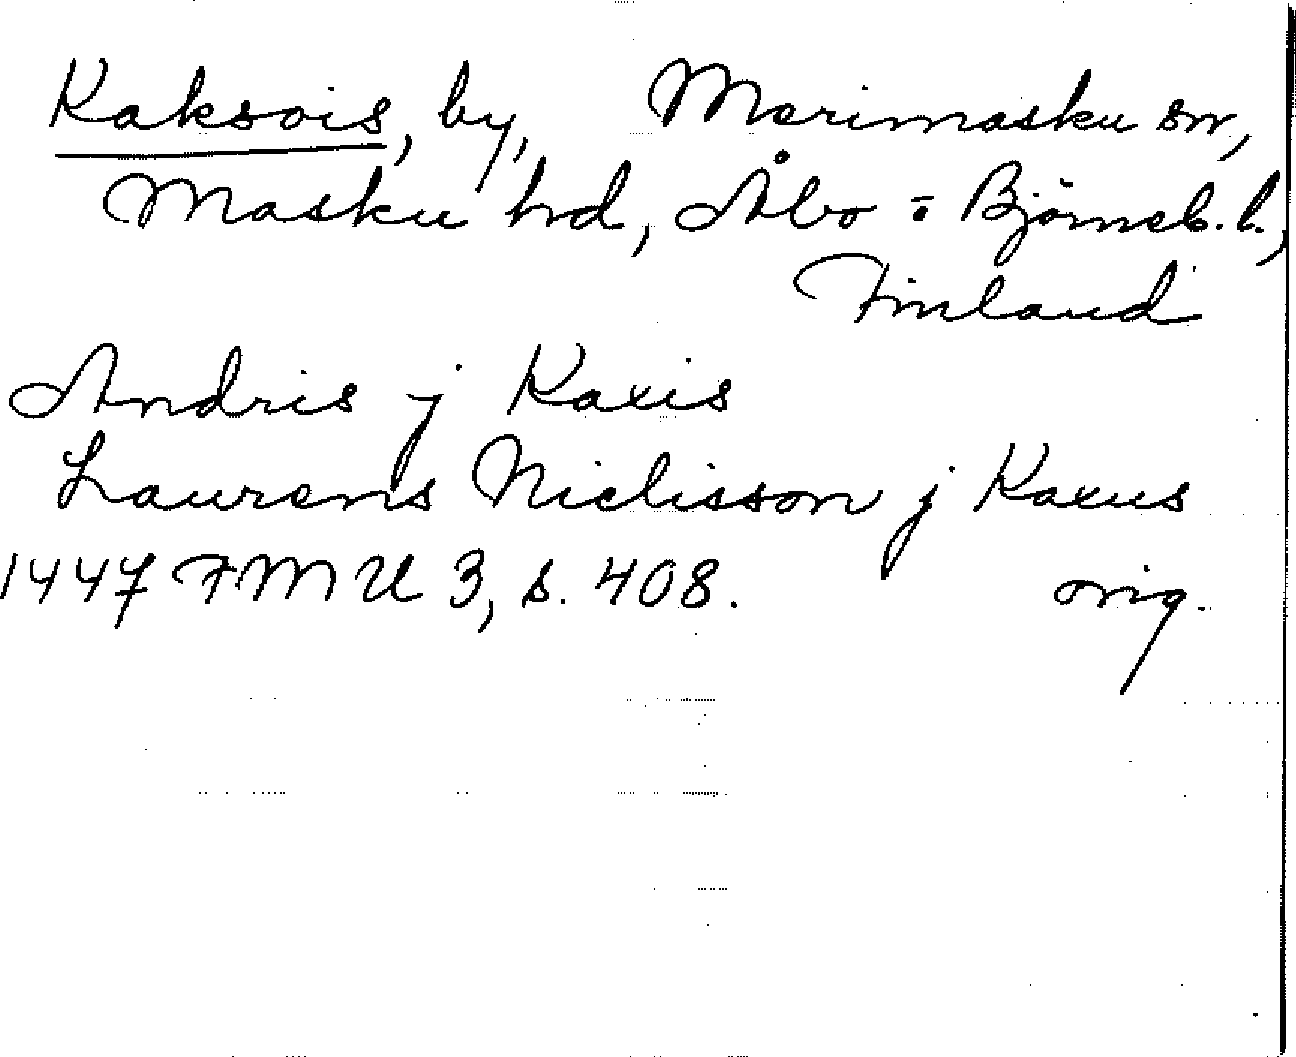 Kaksois, by, Merimasku sn,
Masku hd, Åbo = Björneb. l.,
Finland
Andris j Kaxis
Laurens Niclisson j Kaxus
1447 FMU 3, s. 408. orig.